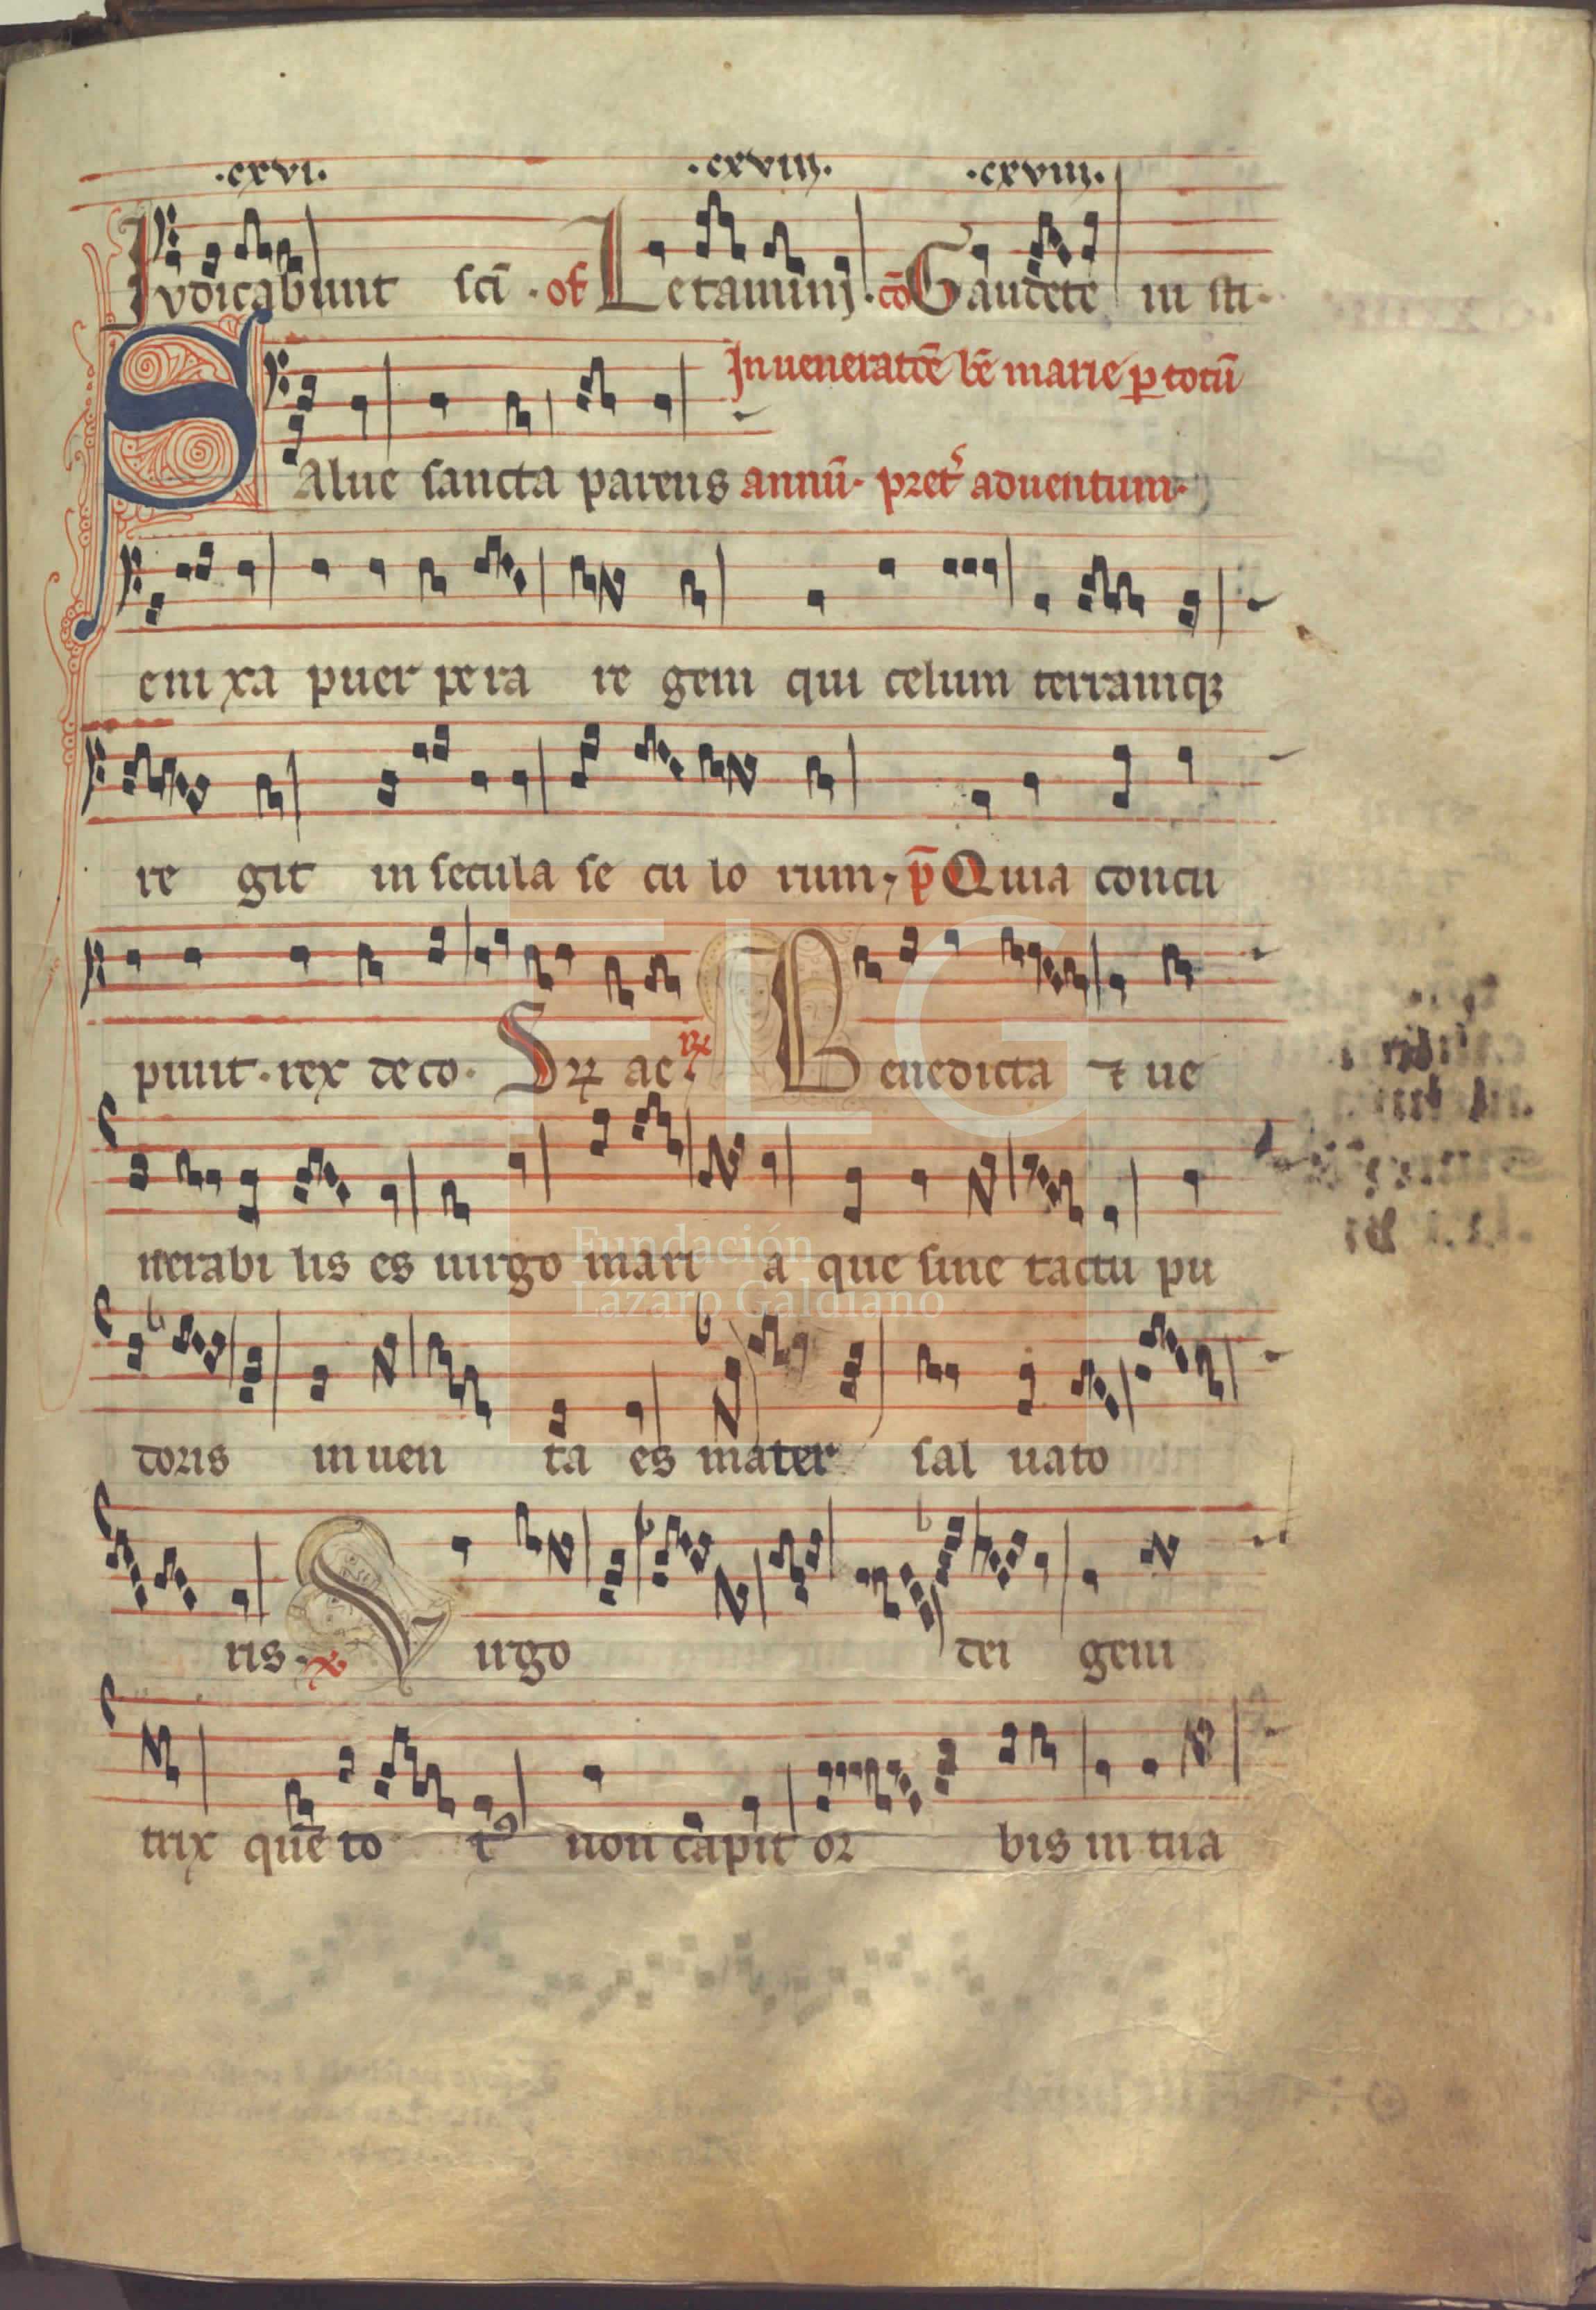 ·cxvi. ·cxviii. ·cxviiii.
Judicabunt sci͞ · of Letamini · co͞ Gaudete iu sti ·
In ueneratōe be͞ marie p totū
Salue sancta parens annū· pret᷑ aduentum·
eni xa puer pe ra re gem qui celum terramqꝫ
re git in secula se cu lo rum, p͞ Quia concu
piuit · rex deco · Eꝝ ae · Benedicta ⁊ ue
nerabi lis es uirgo mari a que sine tactu pu
doris inuen ta es mater sal uato
ris · Virgo dei geni
trix que͞ to tꝰ non capit or bis in tua
FLG
Fundación
Lázaro Galdiano